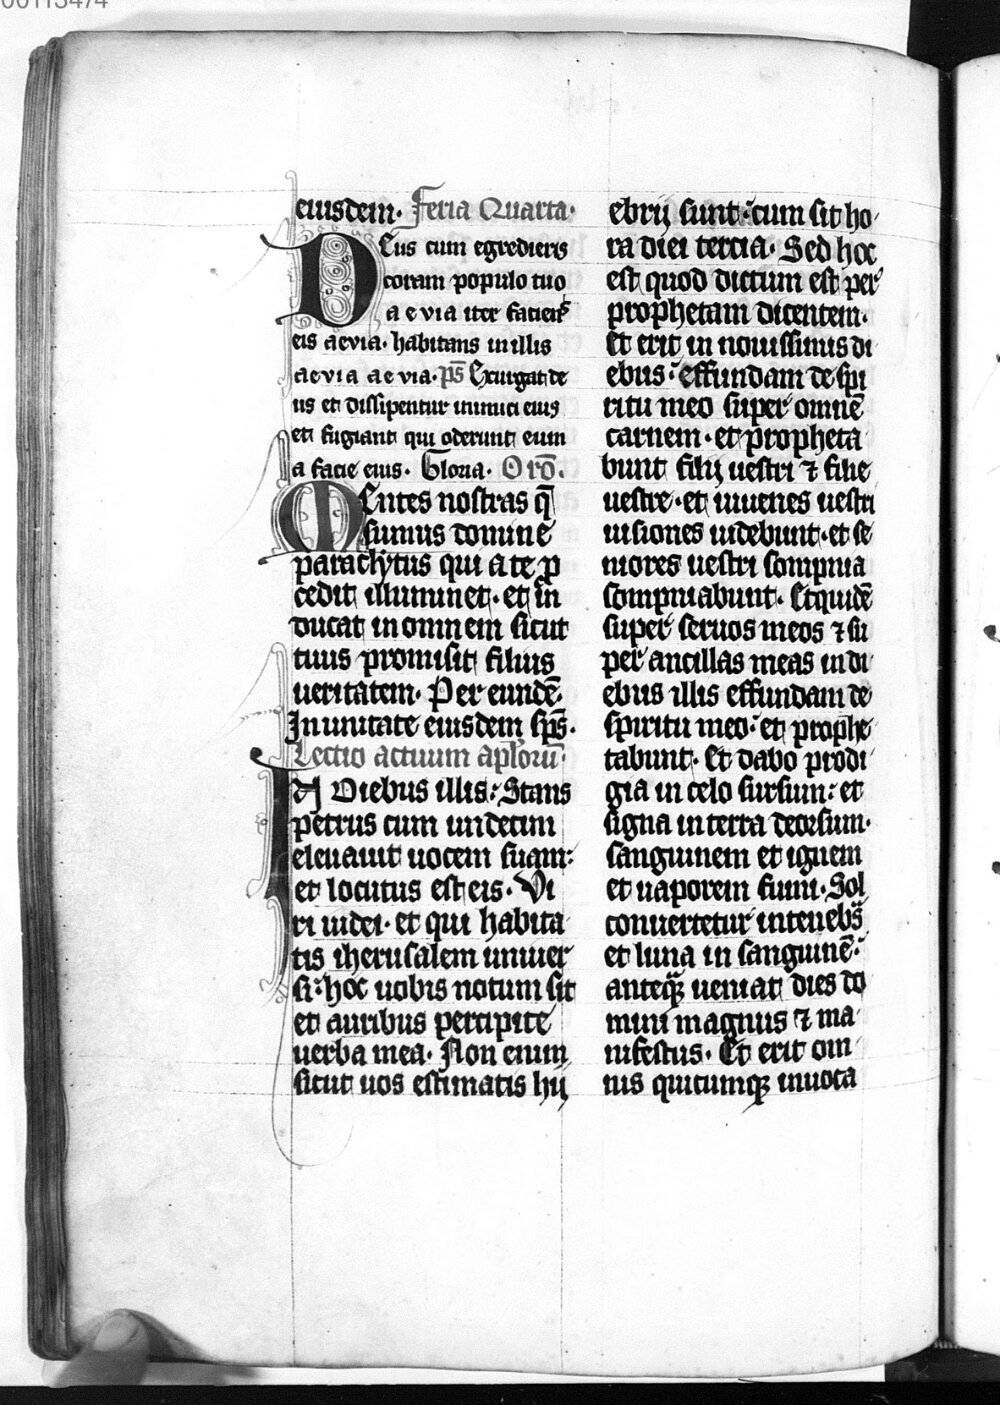 00113474
eiusdem. Feria Quarta.
Deus cum egredieris
coram populo tuo
a e via iter faciens
eis aevia. habitans in illis
aevia aevia. ps̄ Exurgat de
us et dissipentur inimici eius
et fugiant qui oderunt eum
a facie eius. Gloria. Orō.
Mentes nostras q̄
sumus domine
paraclytus qui a te p
cedit illuminet. et in
ducat in omnem sicut
tuus promisit filius
veritatem. Per eundē.
In unitate eiusdem sp̄s.
Lectio actuum aplōrū.
In Diebus illis: Stans
petrus cum undecim
elevavit vocem suam:
et locutus est eis. Vi
ri iudei. et qui habita
tis iherusalem univer
si: hoc vobis notum sit
et auribus percipite
verba mea. Non enim
sicut vos estimatis hij
ebrij sunt: cum sit ho
ra diei tercia. Sed hoc
est quod dictum est per
prophetam dicentem.
Et erit in novissimis di
ebus: effundam de spi
ritu meo super omnē
carnem. et propheta
bunt filij vestri ⁊ filie
vestre. et iuvenes vestri
visiones videbunt. et se
niores vestri sompnia
sompniabunt. Et quidē
super servos meos ⁊ su
per ancillas meas in di
ebus illis effundam de
spiritu meo: et prophe
tabunt. Et dabo prodi
gia in celo sursum: et
signa in terra deorsum.
sanguinem et ignem
et vaporem fumi. Sol
convertetur in tenebs̄
et luna in sanguinē:
anteqꝫ veniat dies do
mini magnus ⁊ ma
nifestus. Et erit om
nis quicumqꝫ invoca